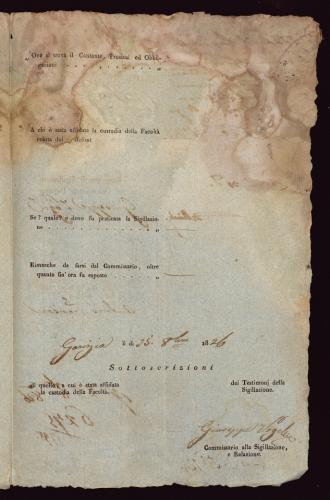 Ove si trova il Contante, Preziosi ed Obbli-
gazioni . . . . . . . . . . . . „
A chi è stata affidata la custodia della Facoltà
relitta dal defunt
Se? quale? e dove fu praticata la Sigillazio-
ne . . . . . . . . . . . . . . „
Rimarche da farsi dal Commissario, oltre
quanto fin'ora fu esposto . . . . . „
Gorizia li 25. 8bre 1826
Sottoscrizioni
di quello, a cui è stata affidata
la custodia della Facoltà.
dei Testimonj della
Sigillazione.
Giuseppe
Commissario alla Sigillazione,
e Relazione.